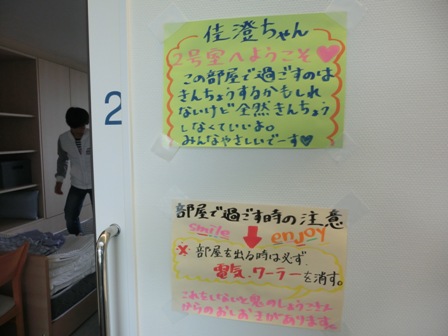 佳澄ちゃん
2号室へようこそ♡
この部屋で過ごすのは
きんちょうするかもしれ
ないけど全然きんちょう
しなくていいよ。
みんなやさしいでーす♡
2
部屋で過ごす時の注意
smile enjoy
× 部屋を出る時は必ず、
電気、クーラーを消す。
これをしないと鬼のしょうこさん
からのおしおきがあります。